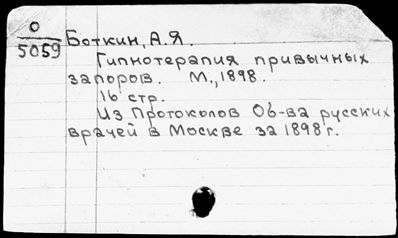 О
5059
Боткин, А.Я.
Гипнотерапия привычных
запоров. М., 1898.
16 стр.
Из Протоколов Об-ва русских
врачей в Москве за 1898 г.